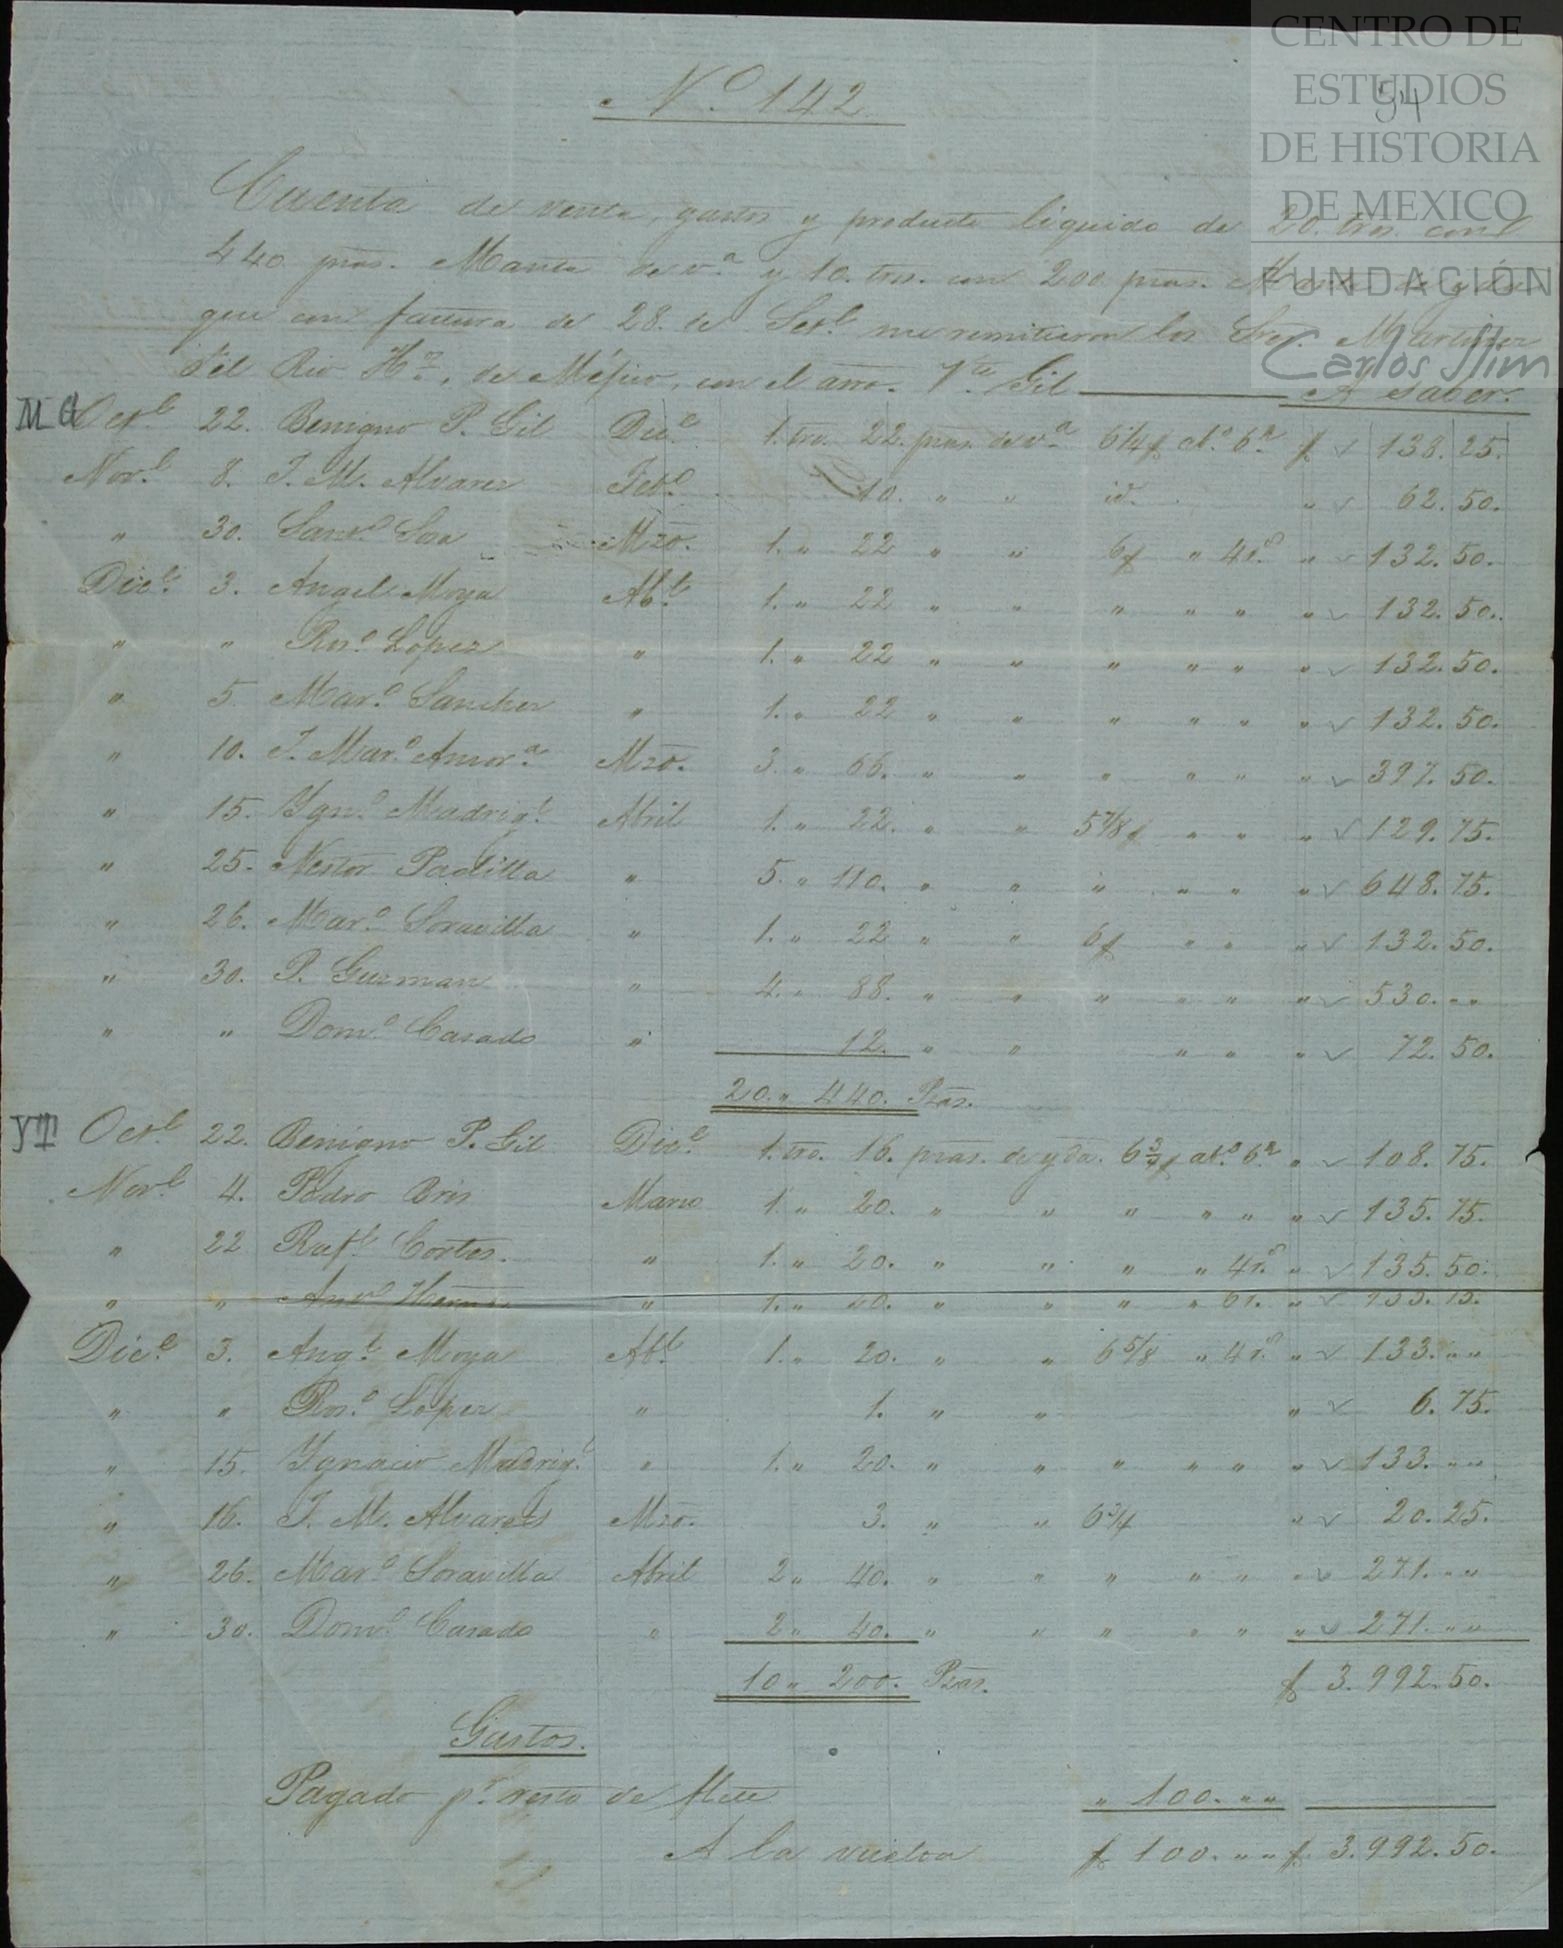 CENTRO DE
ESTUDIOS
DE HISTORIA
DE MEXICO
FUNDACIÓN
Carlos Slim
54
Nº 142
Cuenta de venta, gastos y producto liquido de 20. tros. con
440 pzas. Manta de vª y 10. tros. con 200 pzas. Manta de yda
que con factura de 28. de Setе me remitieron los Sres. Martinez
del Rio Hos, de Méjico, con el arro. Vte Gil A saber.
MG Octe 22. Benigno P. Gil Dice 1. tro. 22. pzas. de vª 6 1/4 $ ab.º 6.r $ 138. 25.
Nove 8. J. M. Alvarez Febº 10. " " id. " 62. 50.
" 30. Santº Soa Mzo. 1. " 22 " " 6$ " 4r.s " 132. 50.
Dice 3. Angel Moya Abl 1. " 22 " " " " " " 132. 50.
" " Rosº Lopez " 1. " 22 " " " " " " 132. 50.
" 5. Marº Sanchez " 1. " 22 " " " " " " 132. 50.
" 10. J. Marº Amorª Mzo. 3. " 66. " " " " " " 397. 50.
" 15. Ygnº Madrigl Abril 1. " 22. " " 5 7/8 $ " " " 129. 75.
" 25. Nestor Padilla " 5. " 110. " " " " " " 648. 75.
" 26. Marº Soravilla " 1. " 22 " " 6$ " " " 132. 50.
" 30. P. Guzman " 4. " 88. " " " " " " 530. " "
" " Domº Casado " 12. " " " " " 72. 50.
20. " 440. Pzas.
YT Octe 22. Benigno P. Gil Dice 1. tro. 16. pzas. de yda. 6 3/4 $ ab.º 6.r " 108. 75.
Nove 4. Pedro Bris Marzo 1. " 20. " " " " " " 135. 75.
" 22 Rafl Cortes. " 1. " 20. " " " " 4r.s " 135. 50.
" " Antº " 1. " 20. " " " " 6r. " 135. 75.
Dice 3. Angl Moya Abl 1. " 20. " " 6 5/8 " 4r.s " 133. " "
" " Rosº Lopez " 1. " " " 6. 75.
" 15. Ygnacio Madrigl " 1. " 20. " " " " " " 133. " "
" 16. J. M. Alvarez Mzo. 3. " " 6 3/4 " 20. 25.
" 26. Marº Soravilla Abril 2 " 40. " " " " " " 271. " "
" 30. Domº Casado " 2 " 40. " " " " " " 271. " "
10 " 200. Pzas. $ 3.992. 50.
Gastos.
Pagado pr. resto de flete " 100. " "
A la vuelta $ 100. " " $ 3.992. 50.